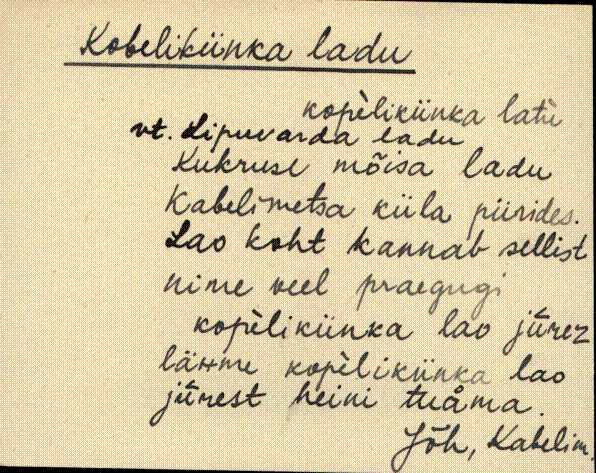 Kobelikünka ladu
kopèlikünka latù
vt. Lipuvarda ladu
Kukruse mõisa ladu
Kabelimetsa küla piirides.
Lao koht kannab sellist
nime veel praegugi
kopèlikünka lao jǖrez
lähme kopèlikünka lao
jǖrest heini tuåma.
Jõh, Kabelim.